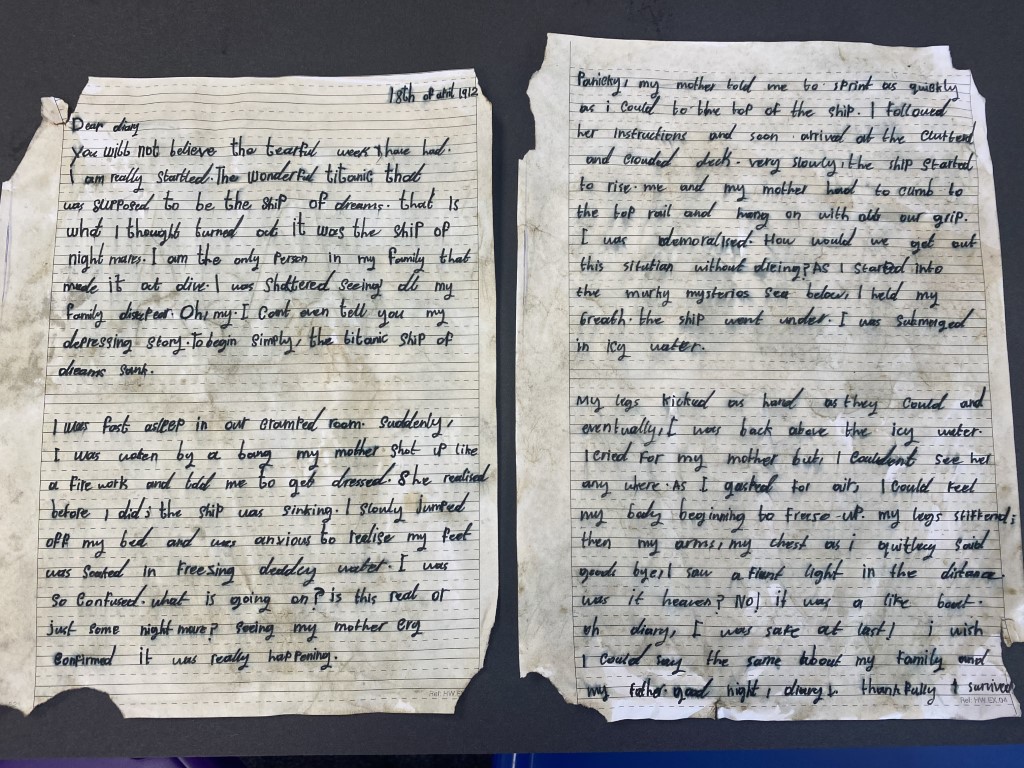 18th of april 1912
Dear diary
You will not believe the tearful week I have had.
I am really startled. The wonderful titanic that
was supposed to be the ship of dreams. that is
what I thought turned out it was the ship of
night mares. I am the only Person in my family that
made it out alive. I was shattered seeing all my
family disapear. Oh, my. I cant even tell you my
depressing story. To begin simply, the titanic ship of
dreams sunk.
I was fast asleep in our cramped room. Suddenly,
I was woken by a bang my mother shot up like
a fire work and told me to get dressed. She realised
before I did; the ship was sinking. I slowly jumped
off my bed and was anxious to realise my feet
was soaked in freesing deadly water. I was
so confused. what is going on? is this real or
just some night mare? Seeing my mother
confirmed it was really happening.
Ref: HW EX
Panicky, my mother told me to sprint as quickly
as i could to the top of the ship. I followed
her instructions and soon arrived at the
and crouded deck. very slowly, the ship started
to rise. me and my mother had to climb to
the top rail and hang on with all our grip.
I was demoralised. How would we get out
this sitution without dieing? As I stared into
the murky mysterios sea below, I held my
breath. the ship went under. I was submerged
in icy water.
My legs kicked as hard as they could and
eventually, I was back above the icy water.
I cried for my mother but, I couldent see her
any where. As I gasped for air, I could feel
my body beginning to freese-up. my legs stiffend;
then my arms, my chest as i quitley said
good bye, I saw a light in the distance
was it heaven? No! it was a like boat.
oh diary, I was safe at last! i wish
I could say the same about my family and
my father. good night, diary. thankfully I survived
Ref: HW EX 04